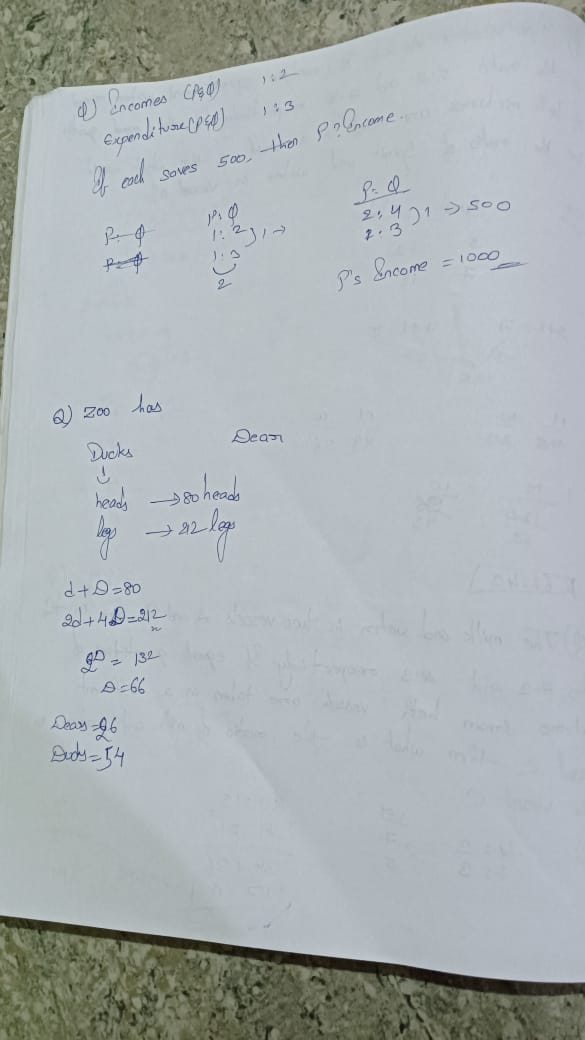 Q) Incomes (P&Q) 1:2
Expenditure (P&Q) 1:3
If each saves 500, then P? Income.
P: Q
P: Q
1: 2 } 1 →
1: 3
2
P: Q
2: 4 } 1 → 500
2: 3
P's Income = 1000
Q) Zoo has
Ducks Dear
heads → 80 heads
legs → 212 legs
d + D = 80
2d + 4D = 212
2D = 132
D = 66
Dears = 26
Ducks = 54